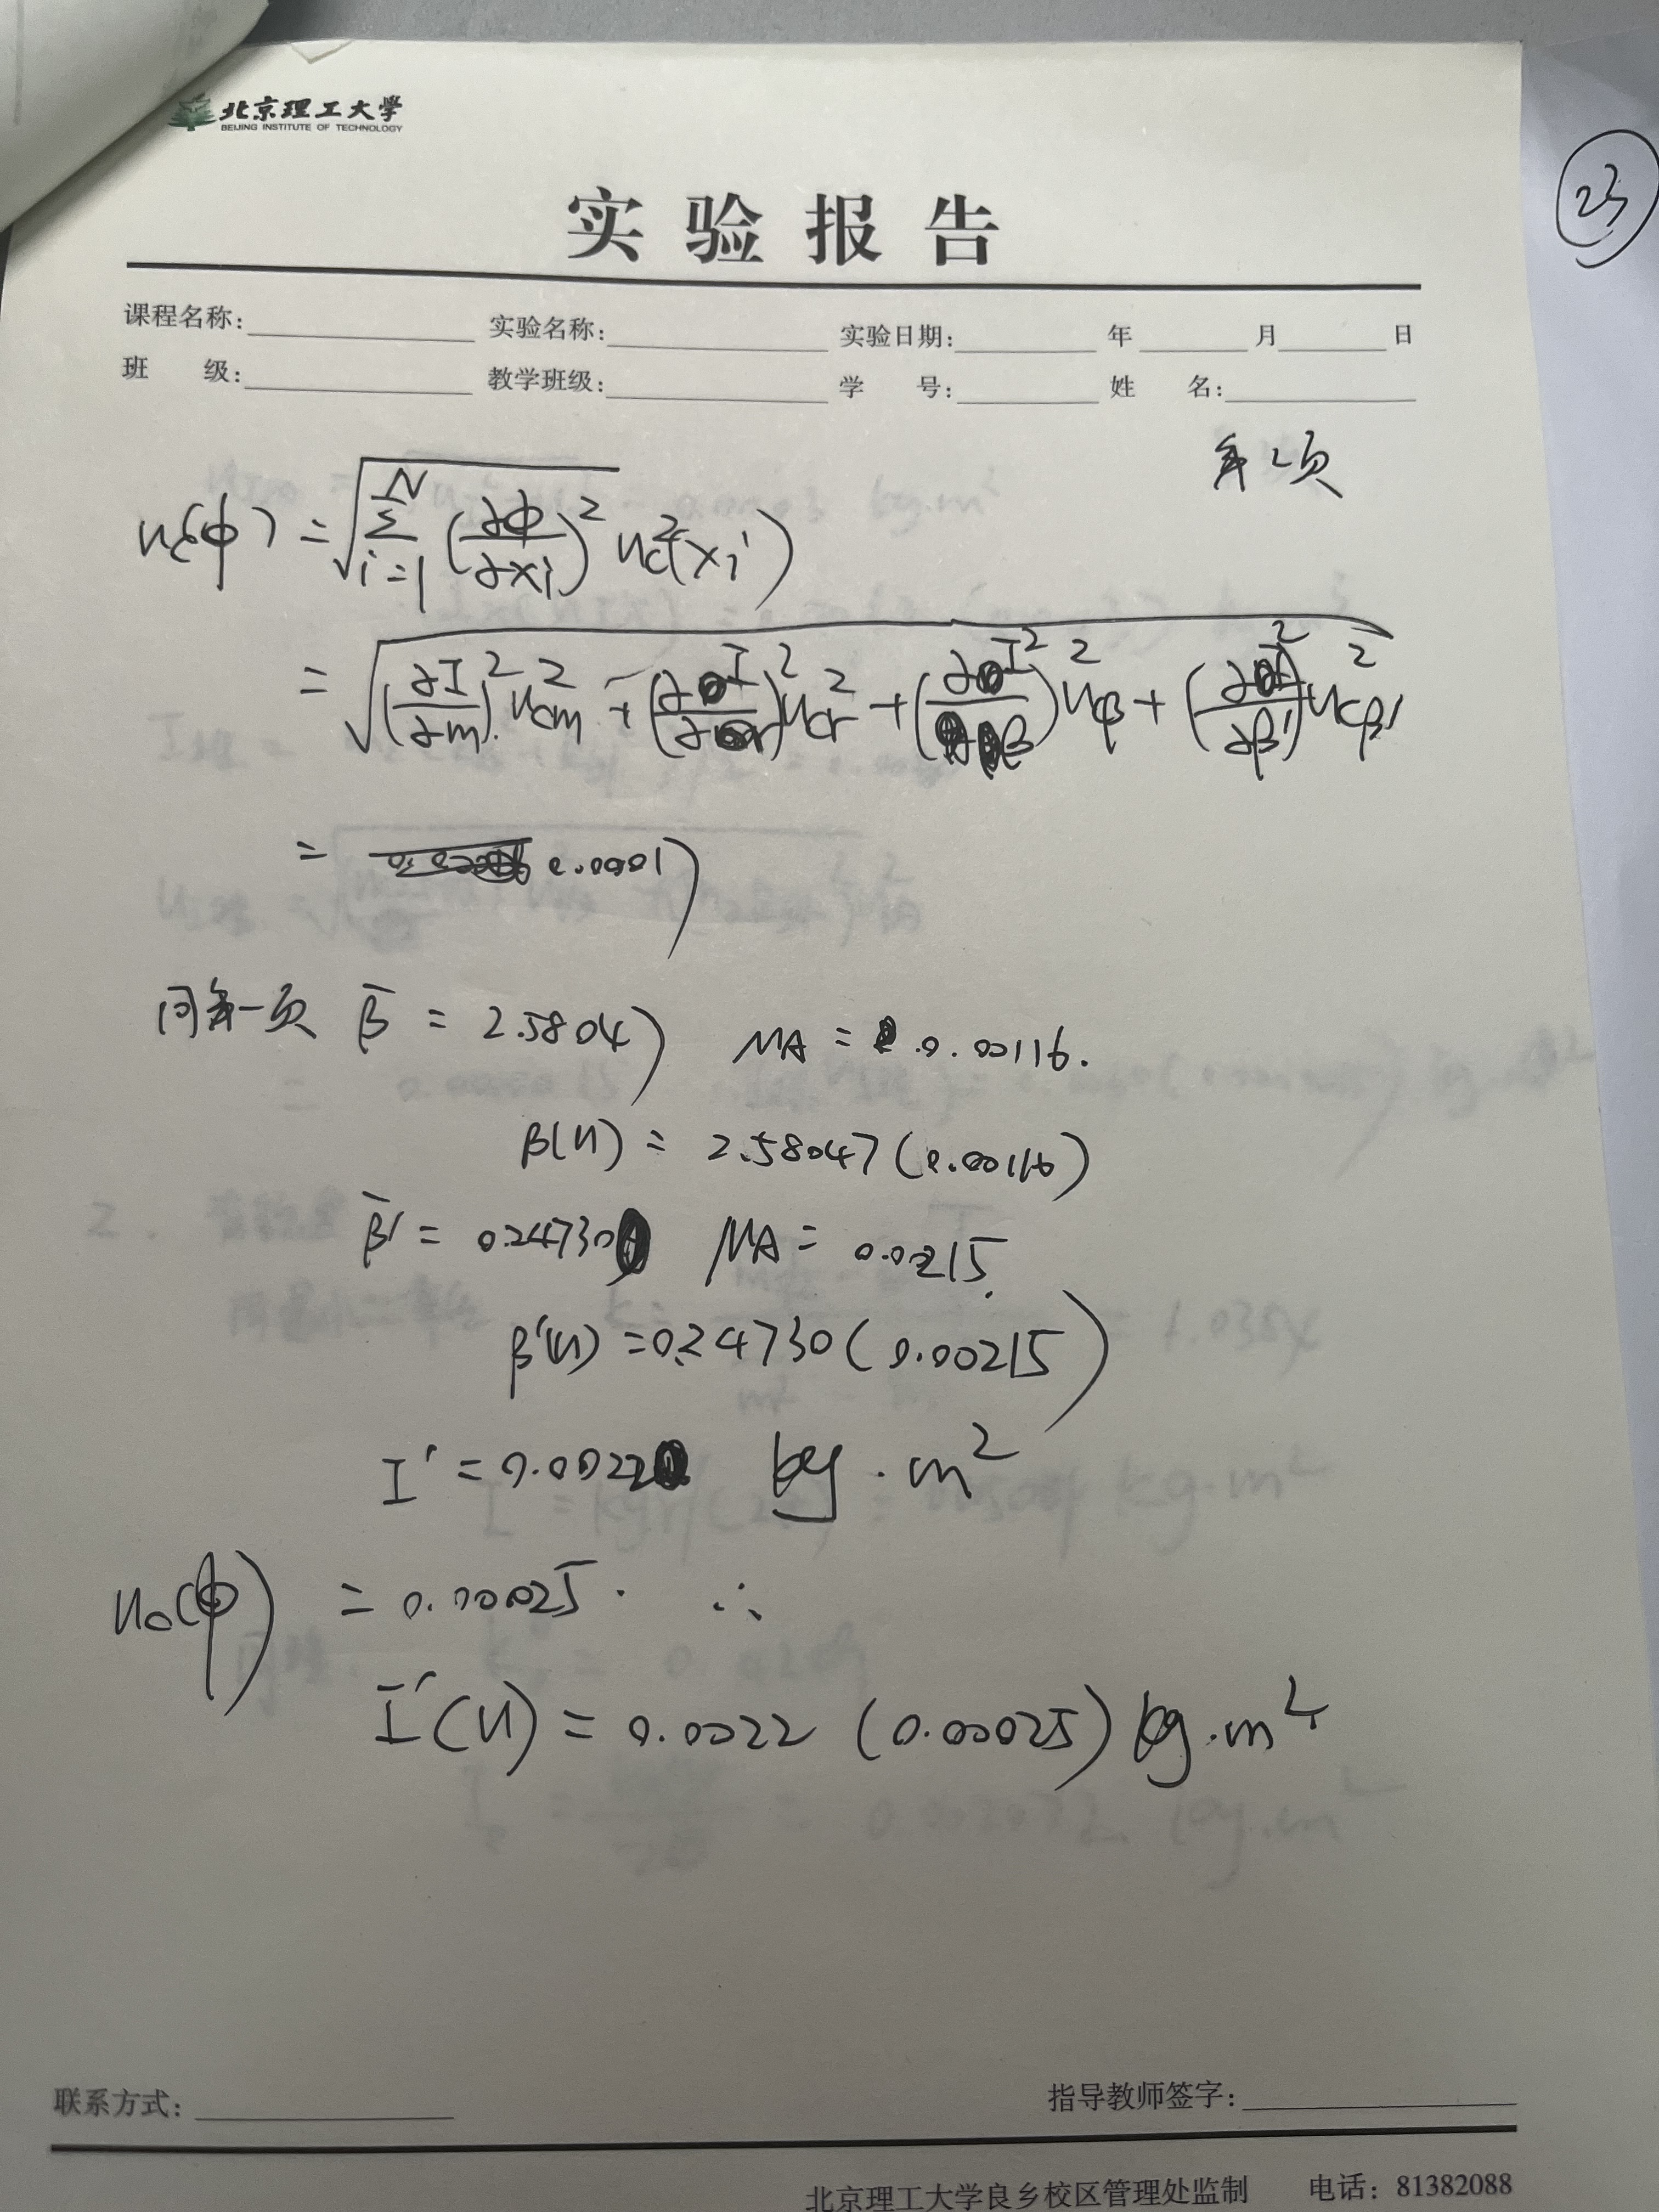 北京理工大学
BEIJING INSTITUTE OF TECHNOLOGY
23
实验报告
课程名称: 实验名称: 实验日期: 年 月 日
班 级: 教学班级: 学 号: 姓 名:
第2页
uc(φ) = √(Σ_{i=1}^{N} (∂φ/∂xi)² uc²(xi))
= √((∂I/∂m)² ucm² + (∂I/∂r)² ucr² + (∂I/∂β)² ucβ² + (∂I/∂β')² ucβ'²)
= 0.00017
同第一页 β̄ = 2.58047 MA = 0.00116.
β(u) = 2.58047 (0.00116)
β̄' = 0.24730 MA = 0.00215.
β'(u) = 0.24730 (0.00215)
I' = 0.0022 kg·m²
uc(φ) = 0.00025. ∴
I'(u) = 0.0022 (0.00025) kg·m²
联系方式: 指导教师签字:
北京理工大学良乡校区管理处监制 电话: 81382088